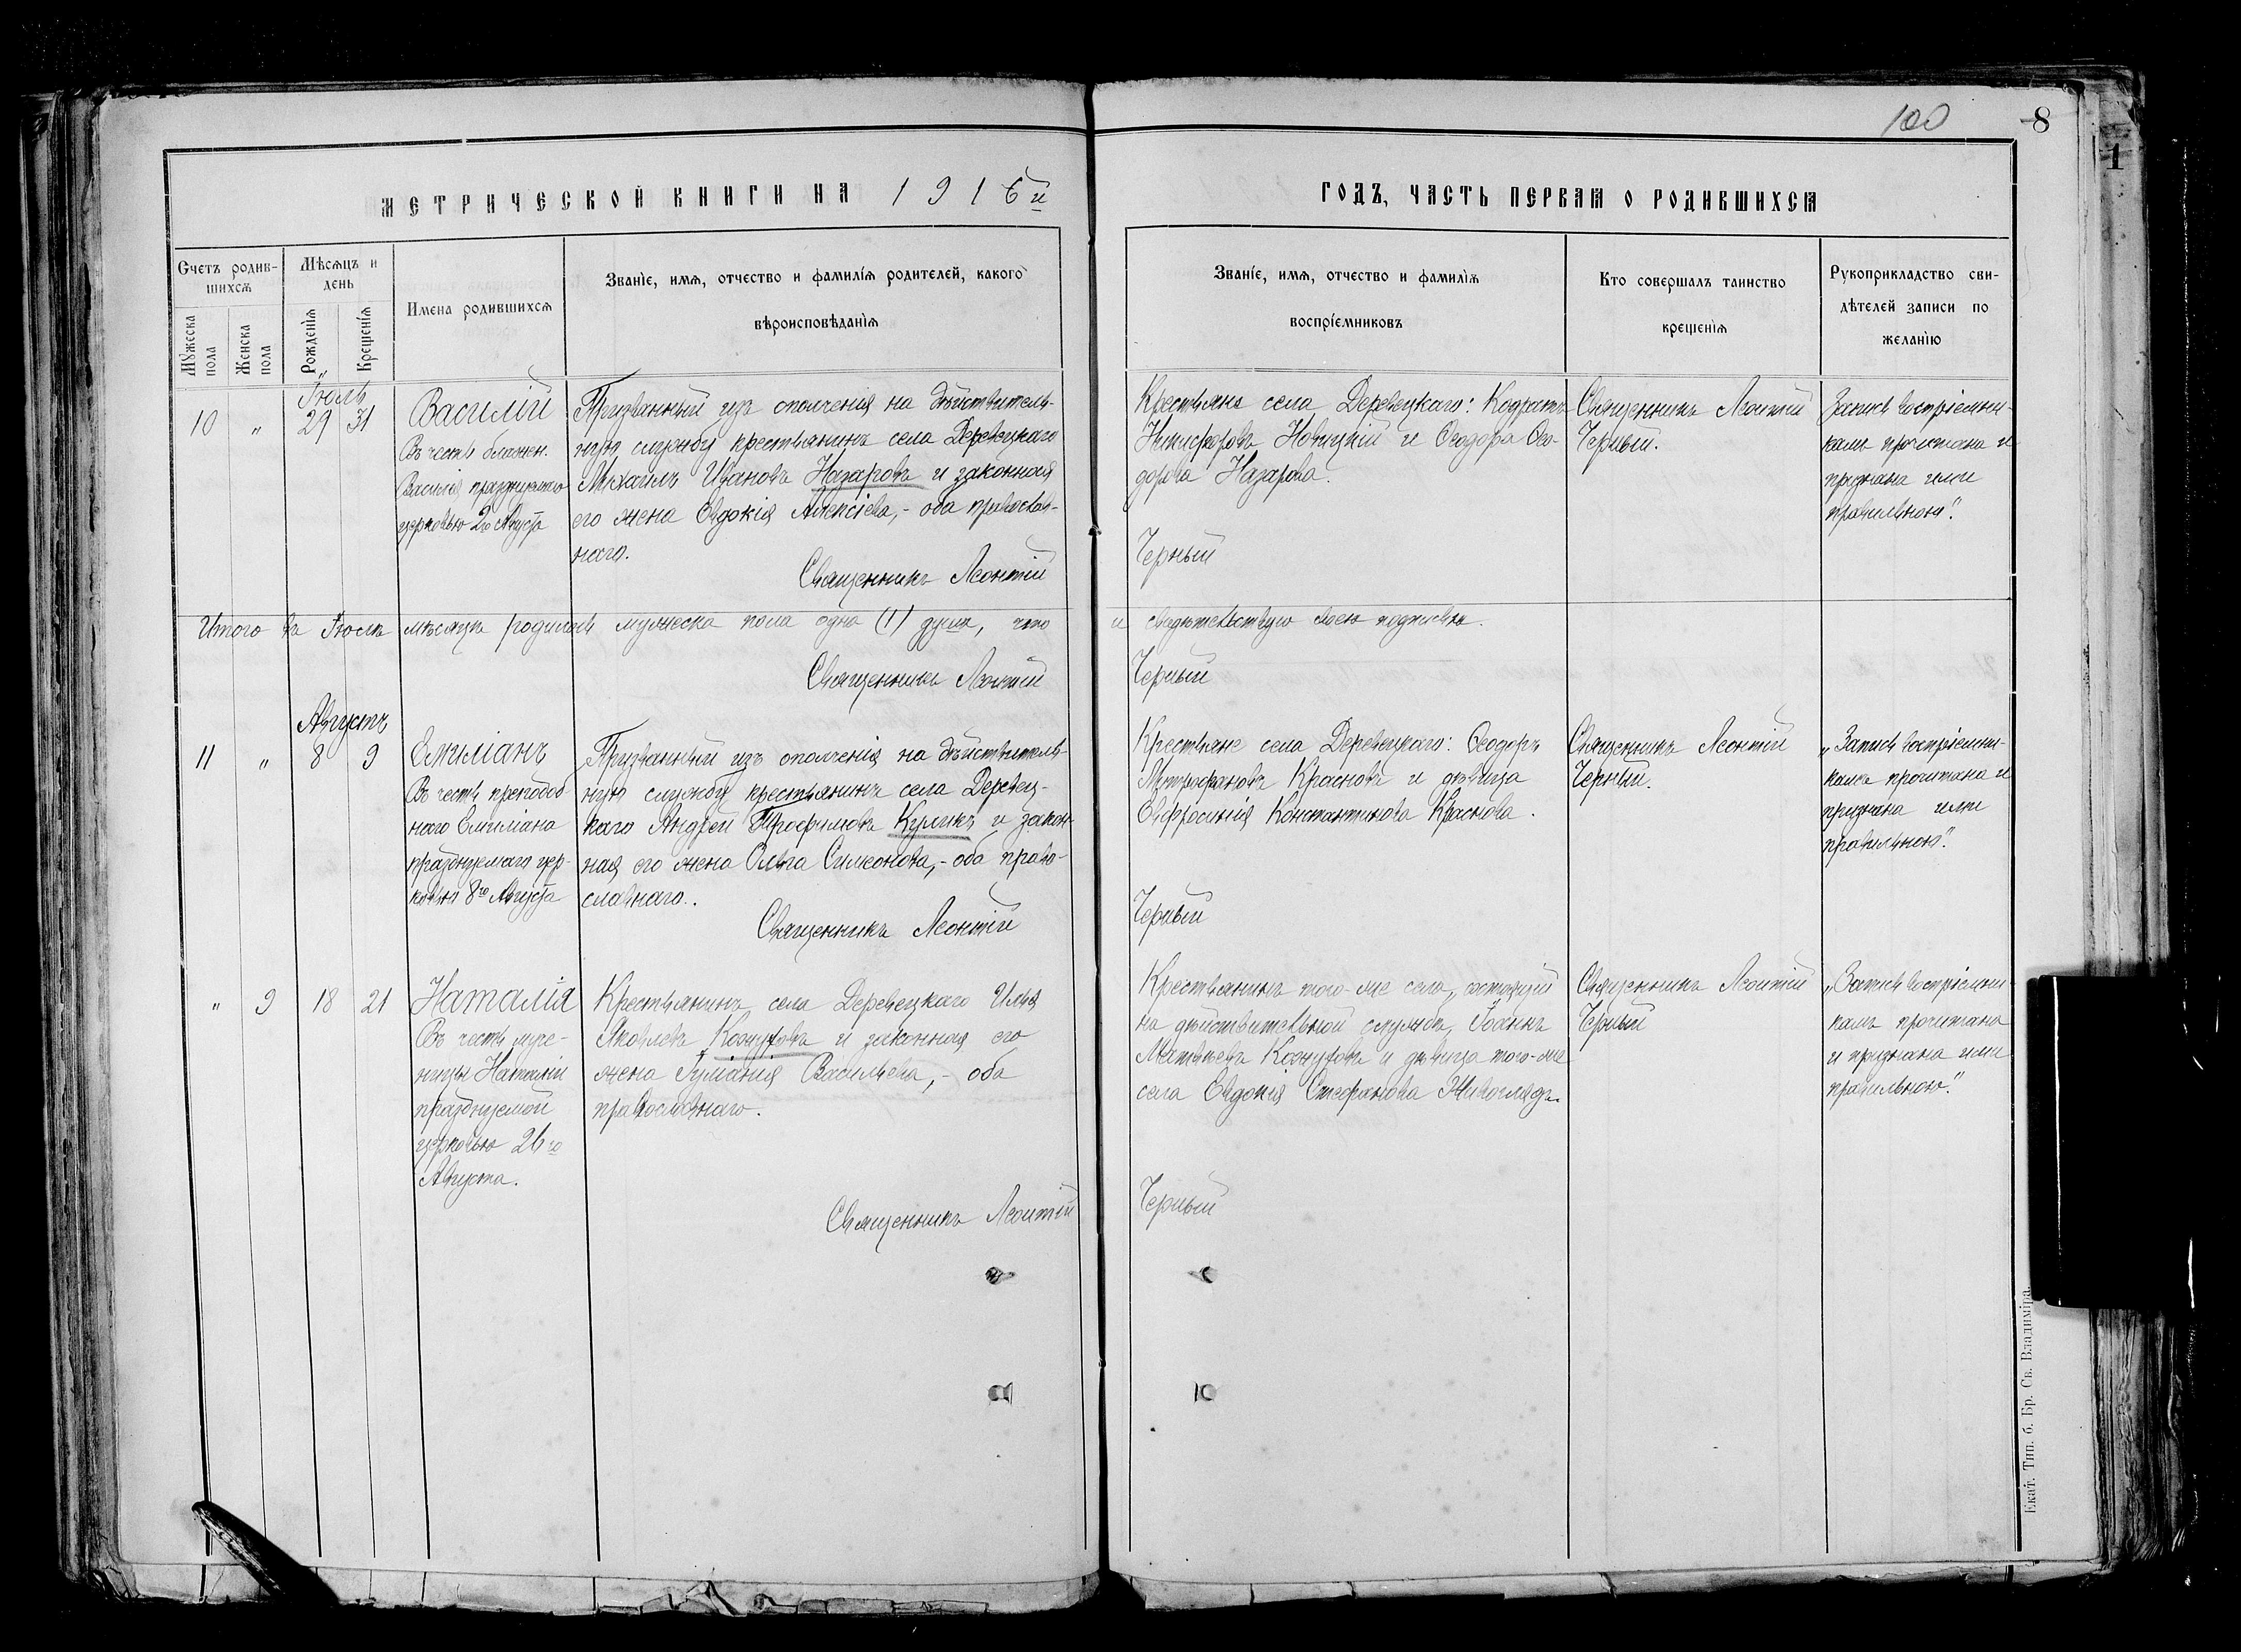 100
8
1
МЕТРИЧЕСКОЙ КНИГИ НА 1916й
ГОДЪ, ЧАСТЬ ПЕРВАЯ О РОДИВШИХСЯ
Счетъ родив-
шихся
Мѣсяцъ и
день
Имена родившихся
Званіе, имя, отчество и фамилія родителей, какого
вѣроисповѣданія
Мужеска
пола
Женска
пола
Рожденія
Крещенія
Званіе, имя, отчество и фамилія
воспріемниковъ
Кто совершалъ таинство
крещенія
Рукоприкладство сви-
дѣтелей записи по
желанію
Іюль
10 „ 29 31
Василій
Въ честь блажен.
Василія празднуемаго
церковью 2го Августа
Призванный изъ ополченія на дѣйствитель-
ную службу крестьянинъ села Деревецкаго
Михаилъ Ивановъ Назаровъ и законная
его жена Евдокія Алексіева,- оба православ-
наго.
Священникъ Леонтій
Крестьяне села Деревецкаго: Кодратъ
Никифоровъ Новицкій и Ѳеодора Ѳео-
дорова Назарова.
Черный
Священникъ Леонтій
Черный.
Запись воспріемни-
камъ прочитана и
признана ими
правильною".
Итого въ Іюлѣ мѣсяцѣ родилось мужеска пола одна (1) душа, что
и свидѣтельствую своею подписью.
Священникъ Леонтій
Черный
Августъ
11 „ 8 9
Емиліанъ
Въ честь преподоб
наго Емиліана
празднуемаго цер-
ковью 8го Августа
Призванный изъ ополченія на дѣйствитель-
ную службу крестьянинъ села Деревец-
каго Андрей Трофимовъ Куликъ и закон-
ная его жена Ольга Симеонова,- оба право-
славнаго.
Священникъ Леонтій
Крестьяне села Деревецкаго: Ѳеодоръ
Митрофановъ Красновъ и дѣвица
Евфросинія Константинова Краснова.
Черный
Священникъ Леонтій
Черный.
„Запись воспріемни-
камъ прочитана и
признана ими
правильною".
„ 9 18 21
Наталія
Въ честь муче-
ницы Наталіи
празднуемой
церковью 26го
Августа.
Крестьянинъ села Деревецкаго Илья
Яковлевъ Кожуховъ и законная его
жена Іуліанія Васильева,- оба
православнаго.
Священникъ Леонтій
Крестьянинъ того-же села, состоящій
на дѣйствительной службѣ, Іоаннъ
Матвѣевъ Кожуховъ и дѣвица того-же
села Евдокія Стефанова Живоглядъ.
Черный
Священникъ Леонтій
Черный
„Запись воспріемни-
камъ прочитана
и признана ими
правильною".
Екат. Тип. б. Бр. Св. Владиміра.